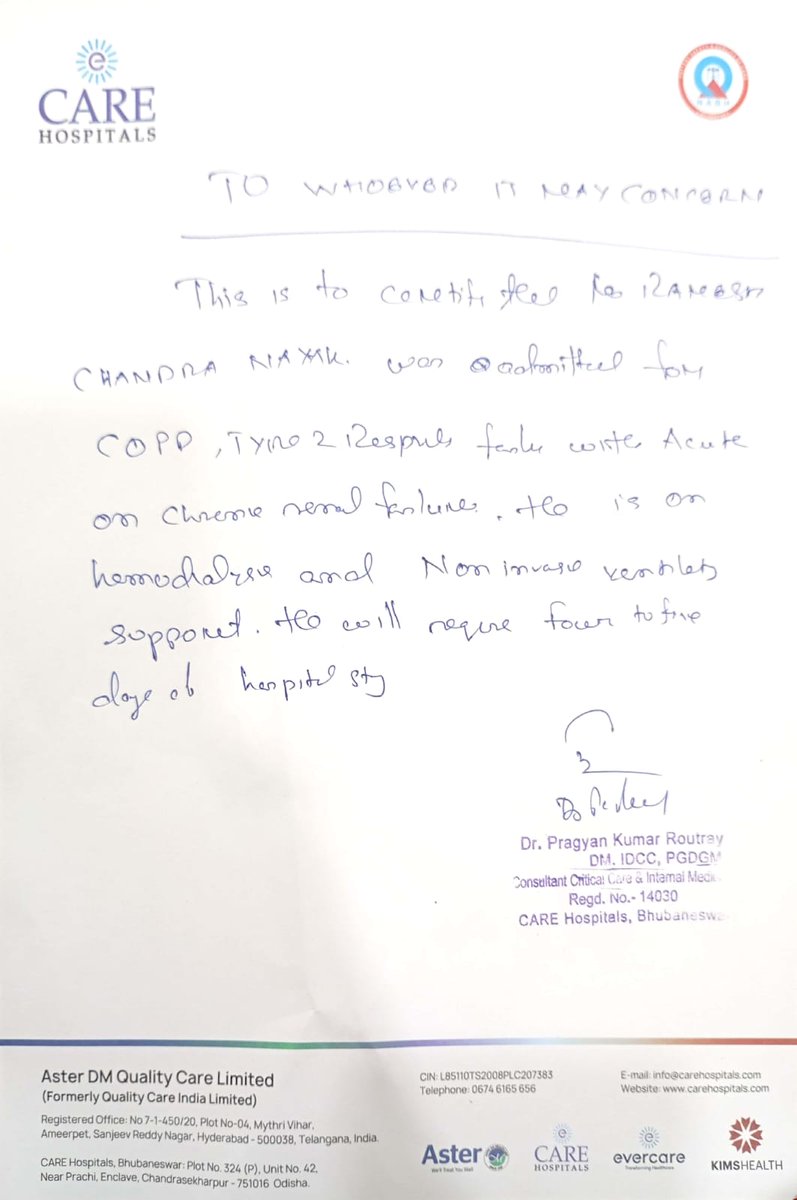 CARE
HOSPITALS
TO WHOEVER IT MAY CONCERN
This is to RAMESH
CHANDRA NAYAK. was admitted for
COPD, TYPE 2 with Acute
on chronic renal failure. He is on
hemodialysis and Non invasive
support. He will require four to five
days of hospital sty
Dr. Pragyan Kumar Routray
DM. IDCC, PGDGM
Consultant Critical Care & Internal
Regd. No.- 14030
CARE Hospitals,
Aster DM Quality Care Limited
(Formerly Quality Care India Limited)
Registered Office: No 7-1-450/20, Plot No-04, Mythri Vihar,
Ameerpet, Sanjeev Reddy Nagar, Hyderabad - 500038, Telangana, India.
CARE Hospitals, Bhubaneswar: Plot No. 324 (P), Unit No. 42,
Near Prachi, Enclave, Chandrasekharpur - 751016 Odisha.
CIN: L85110TS2008PLC207383
Telephone: 0674 6165 656
E-mail: info@carehospitals.com
Website: www.carehospitals.com
Aster
We'll Treat You Well
CARE
HOSPITALS
evercare
Transforming Healthcare
KIMSHEALTH